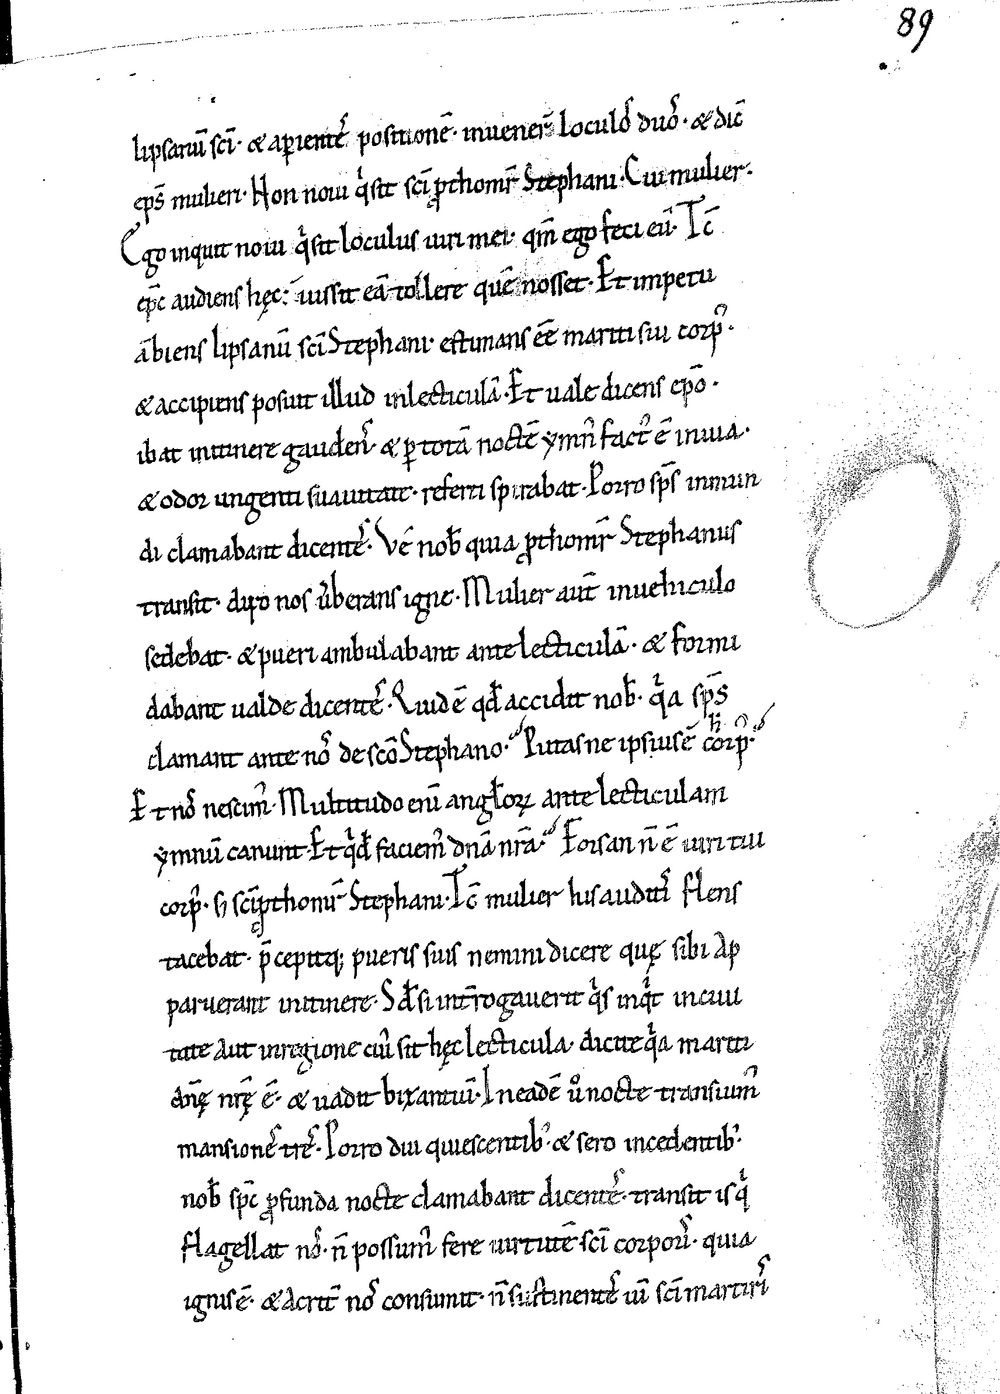 89
lipsanū sc̄i · & aperientes positionē · inuener̄ loculos duos · & dic̄
ep̄s mulieri · Non noui q̄ sit sc̄i ꝓthom̄r Stephani · Cui mulier ·
Ego inquit noui q̄ sit loculus uiri mei · qm̄ ego feci eū · Tc̄
ep̄c audiens hęc · iussit eā tollere quē nosset · Et impetu
ābiens lipsanū sc̄i Stephani · estimans eē mariti sui corp᾽ ·
& accipiens posuit illud in lecticulā · Et uale dicens ep̄o ·
ibat in itinere gaudens · & ꝑ totā noctē ymn̄ fact᾽ ē in uia ·
& odor ungenti suauitate · referti spirabat · Porro sp̄s inmun
di clamabant dicentes · Vę nob̄ quia ꝓthom̄r Stephanus
transit · diro nos ūberans igne · Mulier aut̄ in uehiculo
sedebat · & pueri ambulabant ante lecticulā · & formi
dabant ualde dicentes · Quid ē qd̄ accidit nob̄ · q̄a sp̄s
clamant ante nos de sc̄o Stephano · Putasne ipsius ē h̄ corp᾽ ·
Et nos nescim᾽ · Multitudo enī angl̄oꝝ ante lecticulam
ymnū canunt · Et q̄d faciem᾽ dn̄a nr̄a · Forsan n̄ ē uiri tui
corp᾽ · s; sc̄i ꝓthom̄r Stephani · Tc̄ mulier his auditis flens
tacebat · p̄cepitq; pueris suis nemini dicere quę sibi ap
paruerant in itinere · Sed si int̄rogauerit q̄s inq̄t in ciui
tate aut in regione cui᾽ sit hęc lecticula · dicite q̄a mariti
dn̄ę nr̄ę ē · & uadit bizantiū · In eadē ū nocte transium᾽
mansiones tres · Porro diu quiescentib᾽ · & sero incedentib᾽ ·
nob̄ sp̄c ꝓfunda nocte clamabant dicentes · transit is q̄
flagellat nos · n̄ possum᾽ fere uirtutē sc̄i corporis · quia
ignis ē · & acrit̄ nos consumit · n̄ sustinentes uī sc̄i martiris